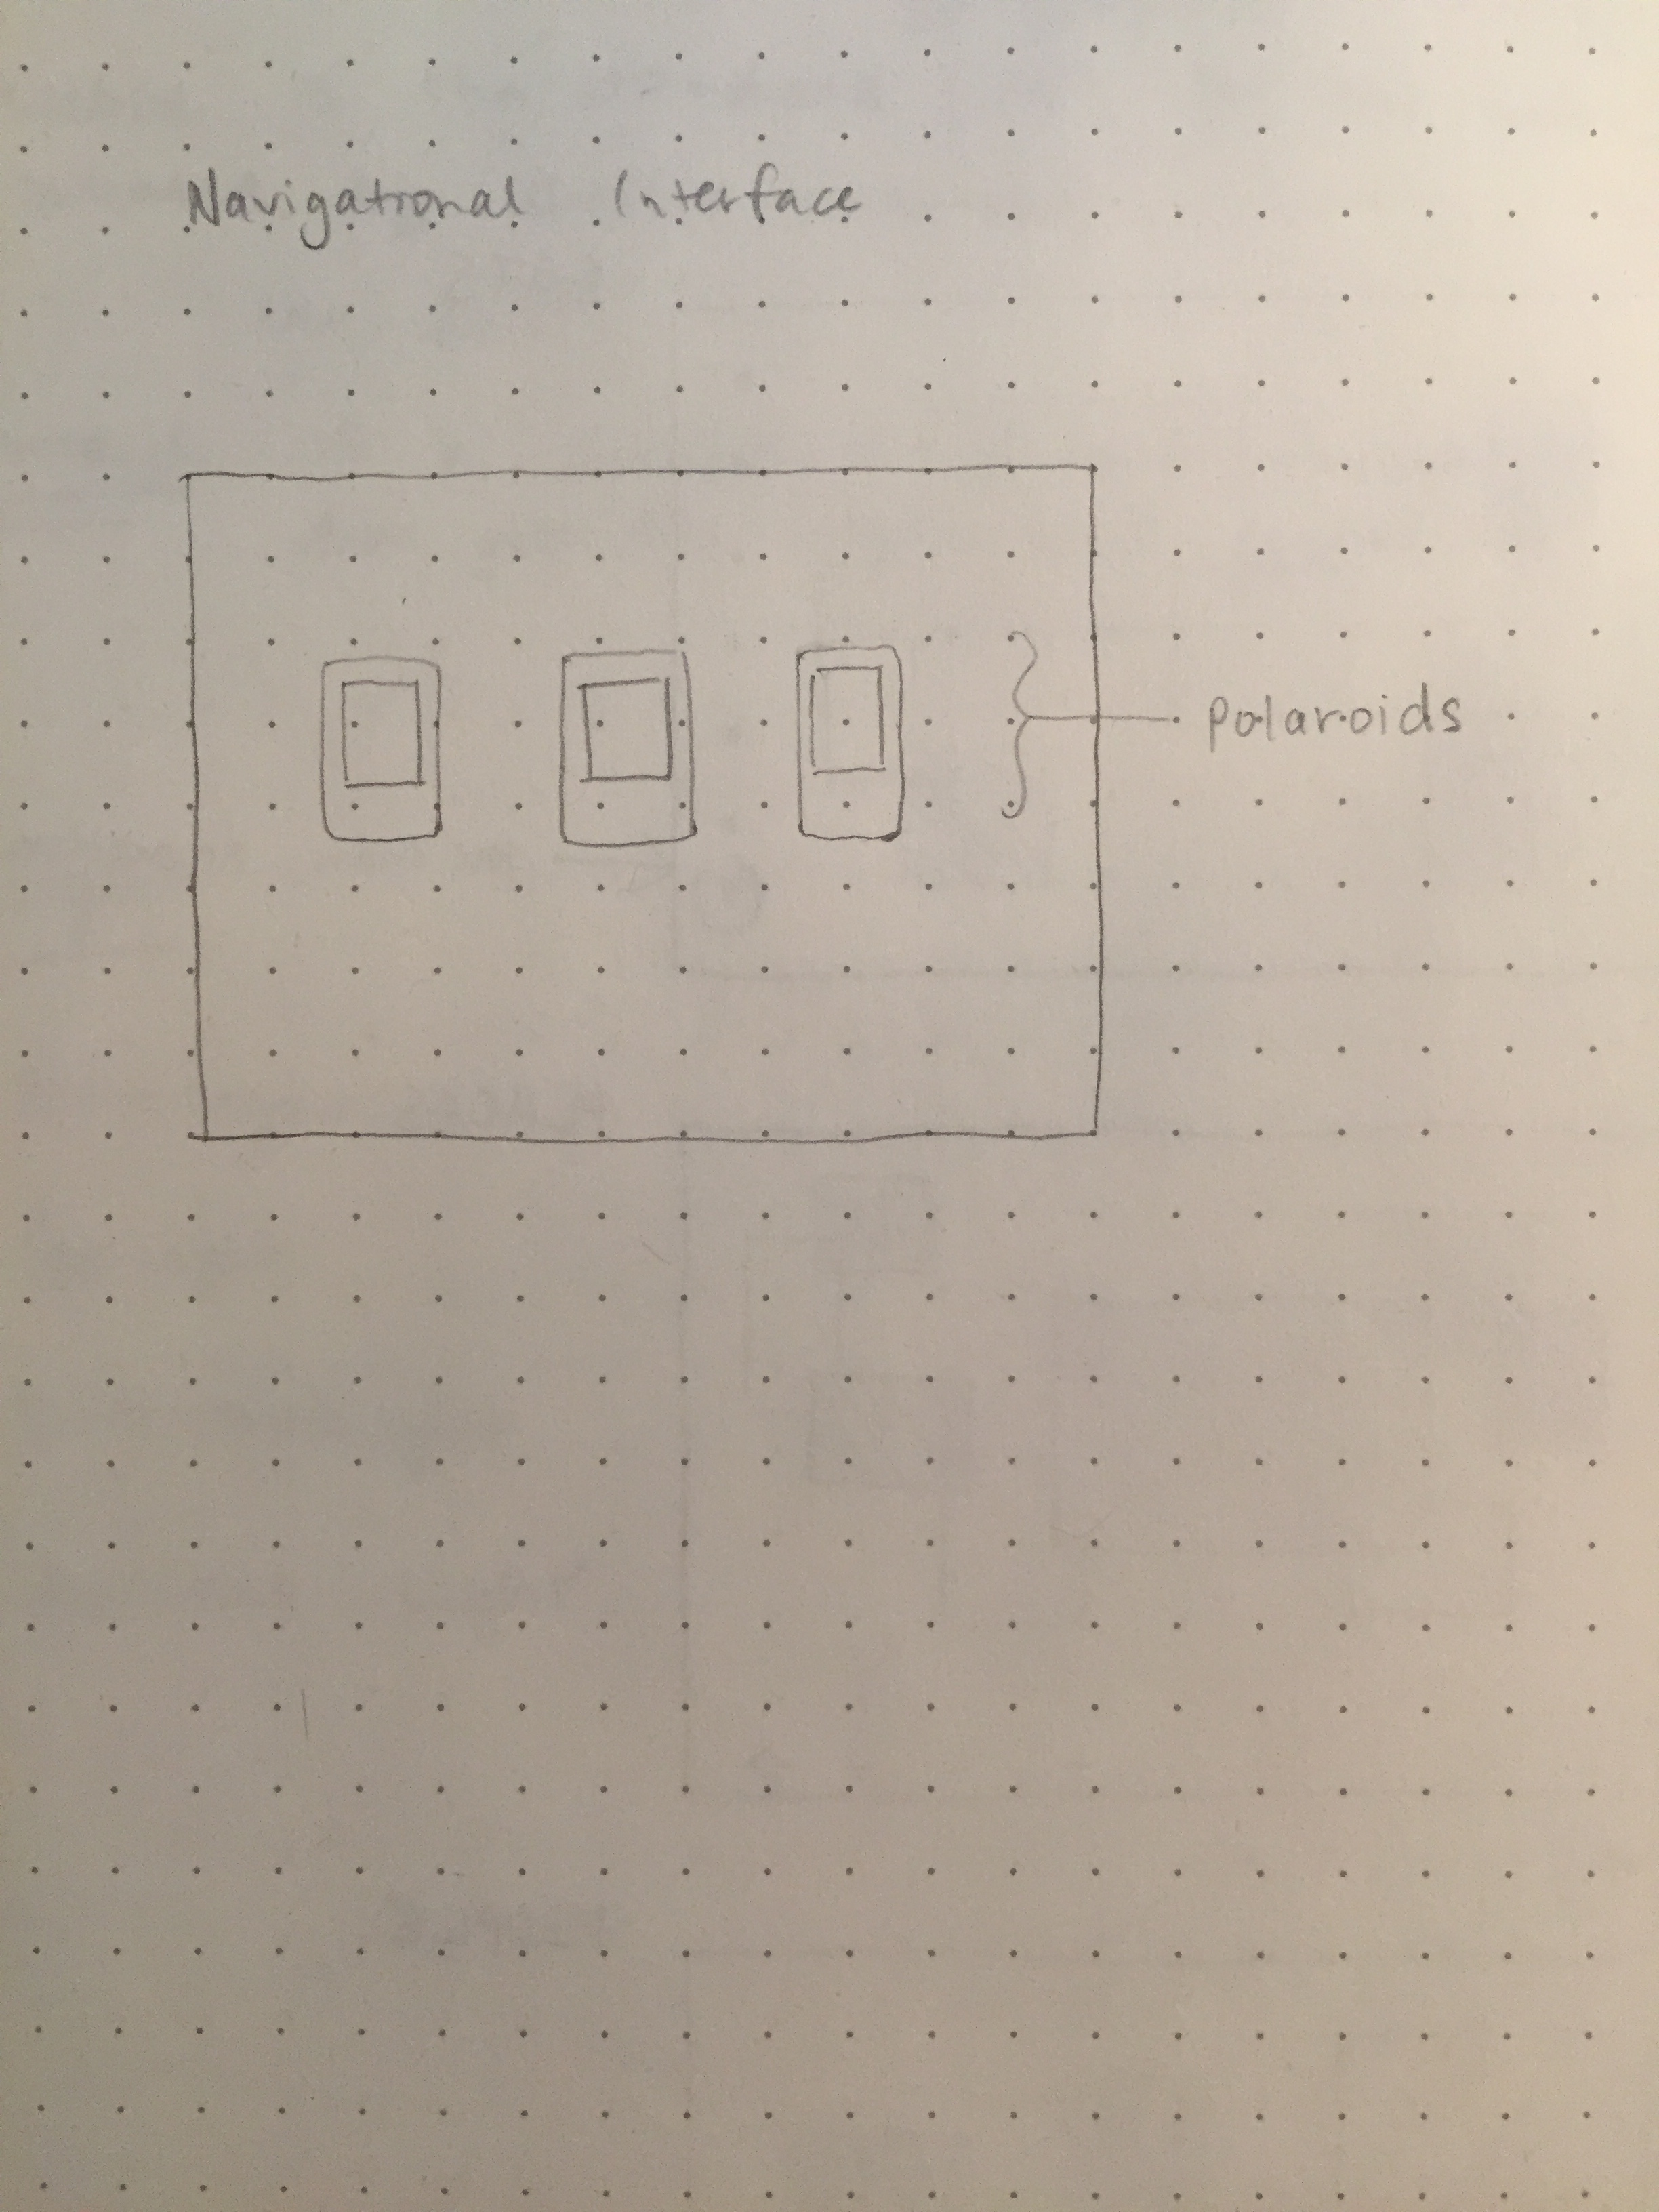 Navigational Interface
polaroids